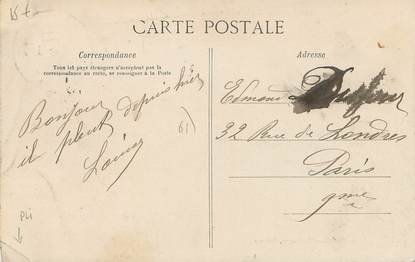 15 f
CARTE POSTALE
Correspondance
Tous les pays étrangers n'acceptent pas la
correspondance au recto, se renseigner à la Poste
Adresse
Bonjour
il pleut depuis hier
61)
Edmond
32 Rue de Londres
Paris
9me
pli